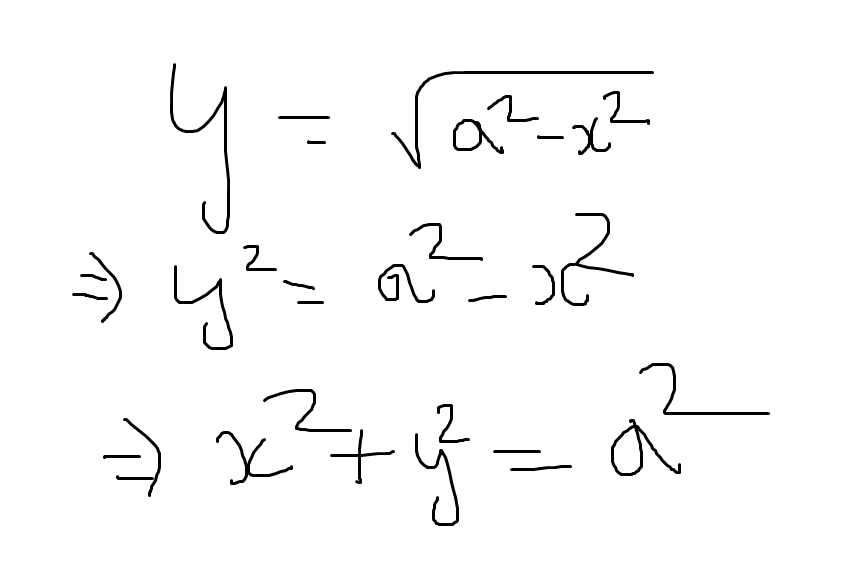 y = √(a² - x²)
⇒ y² = a² - x²
⇒ x² + y² = a²